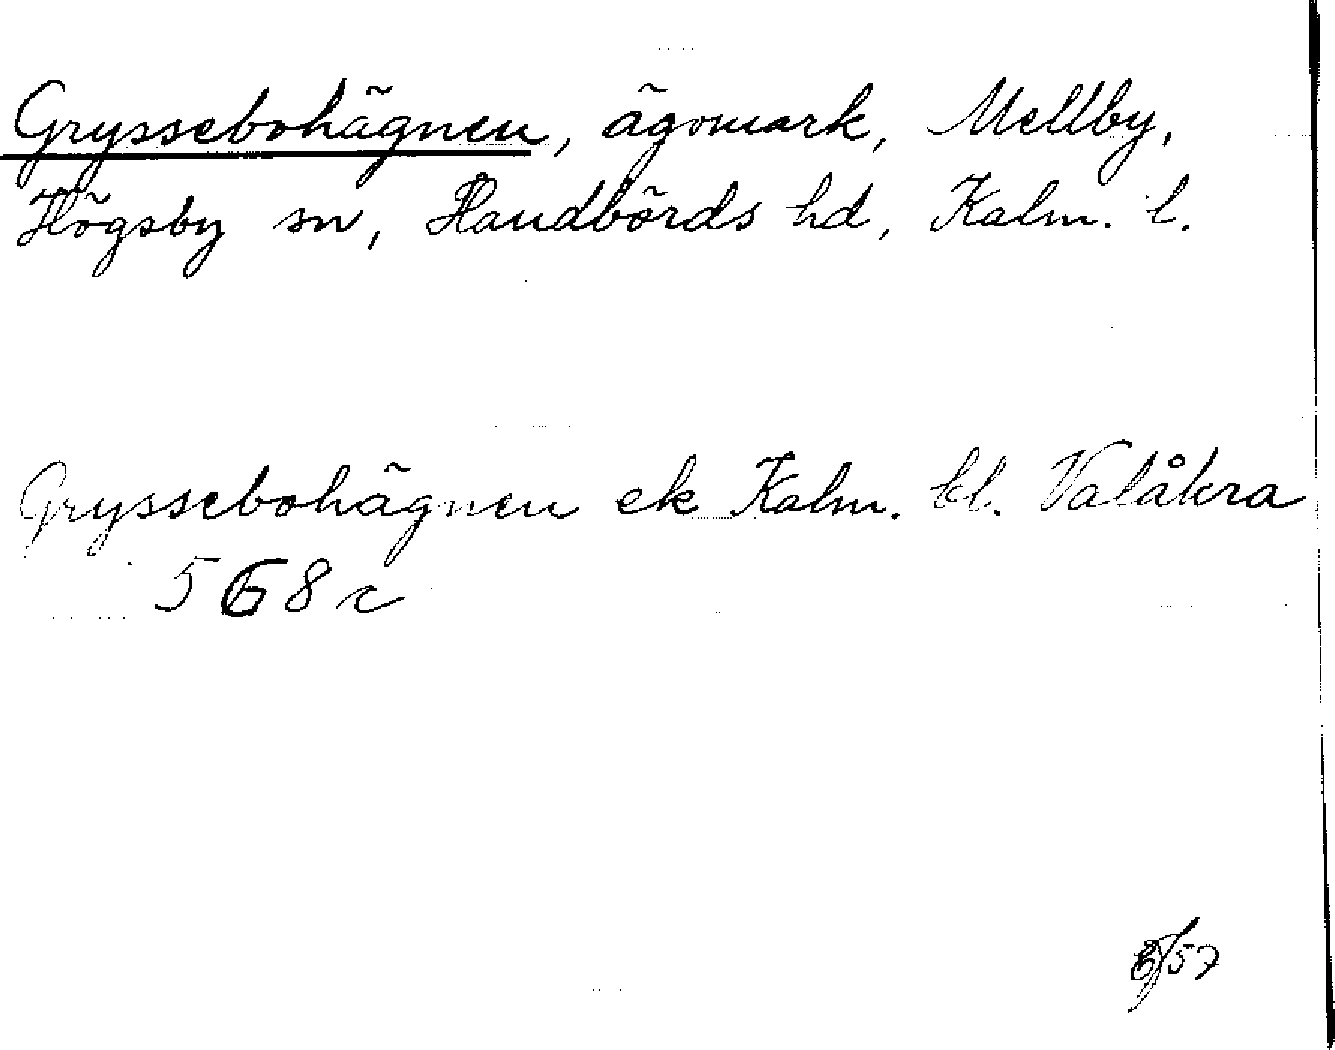 Gryssebohägnen, ägomark, Mellby,
Högsby sn, Handbörds hd, Kalm. l.
Gryssebohägnen ek Kalm. bl. Valåkra
568 c